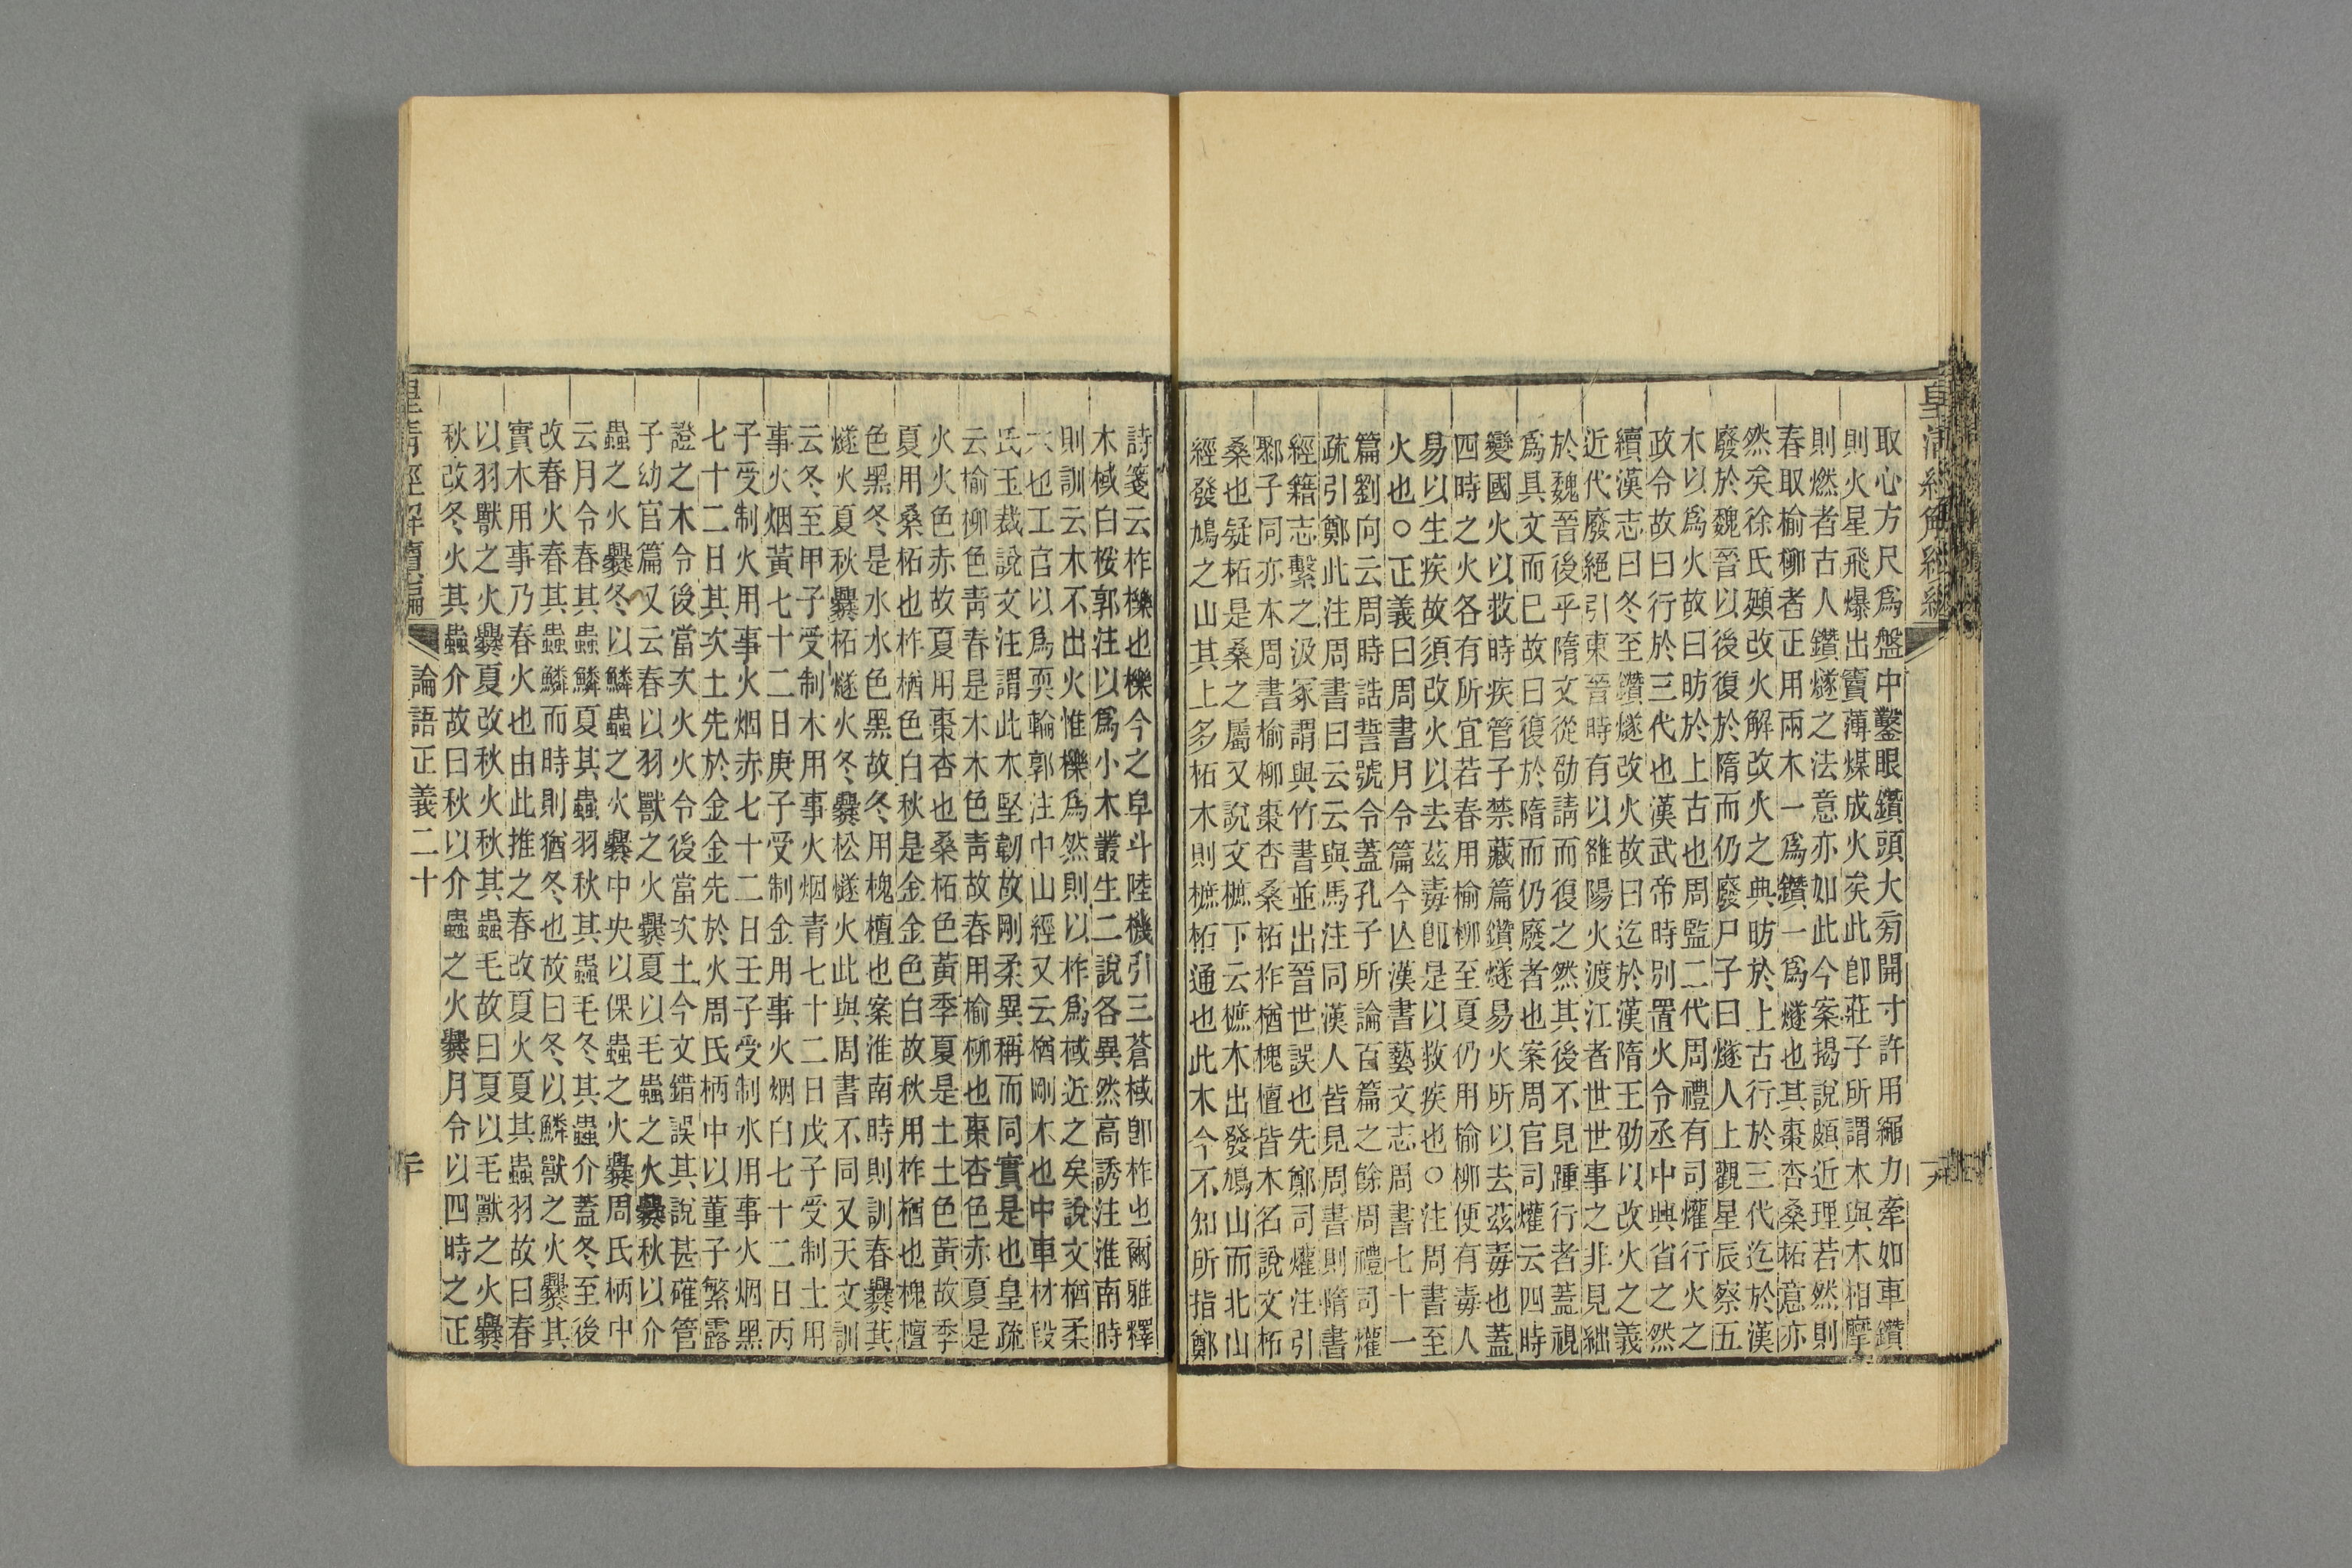 取心方尺爲盤中鑿眼鑽頭大旁開寸許用繩力牽如車鑽
則火星飛爆出竇薄煤成火矣此卽莊子所謂木與木相摩
則燃者古人鑽燧之法意亦如此今案揭說頗近理若然則
春取榆柳者正用兩木一爲鑽一爲燧也其棗杏桑柘意亦
然矣徐氏頲改火解改火之典昉於上古行於三代迄於漢
廢於魏晉以後復於隋而仍廢尸子曰燧人上觀星辰察五
木以爲火故曰昉於上古也周監二代周禮有司爟行火之
政令故曰行於三代也漢武帝時別置火令丞中興省之然
續漢志曰冬至鑽燧改火故曰迄於漢隋王劭以改火之義
近代廢絕引東晉時有以雒陽火渡江者世世事之非見絀
於魏晉後乎隋文從劭請而復之然其後不見踵行者蓋視
爲具文而巳故曰復於隋而仍廢者也案周官司爟云四時
變國火以救時疾管子禁藏篇鑽燧易火所以去茲毒也蓋
四時之火各有所宜若春用榆柳至夏仍用榆柳便有毒人
易以生疾故須改火以去茲毒卽是以救疾也○注周書至
火也○正義曰周書月令篇今亾漢書藝文志周書七十一
篇劉向云周時誥誓號令蓋孔子所論百篇之餘周禮司爟
疏引鄭此注周書曰云云與馬注同漢人皆見周書則隋書
經籍志繫之汲冢謂與竹書並出晉世誤也先鄭司爟注引
鄹子同亦本周書榆柳棗杏桑柘柞楢槐檀皆木名說文柘
桑也疑柘是桑之屬又說文樜下云樜木出發鳩山而北山
經發鳩之山其上多柘木則樜柘通也此木今不知所指鄭
詩箋云柞櫟也櫟今之皁斗陸機引三蒼棫卽柞也爾雅釋
木棫白桵郭注以爲小木叢生二說各異然高誘注淮南時
則訓云木不出火惟櫟爲然則以柞爲棫近之矣說文楢柔
木也工官以爲耎輪郭注中山經又云楢剛木也中車材段
氏玉裁說文注謂此木堅韌故剛柔異稱而同實是也皇疏
云榆柳色靑春是木木色靑故春用榆柳也棗杏色赤夏是
火火色赤故夏用棗杏也桑柘色黃季夏是土土色黃故季
夏用桑柘也柞楢色白秋是金金色白故秋用柞楢也槐檀
色黑冬是水水色黑故冬用槐檀也案淮南時則訓春爨萁
燧火夏秋爨柘燧火冬爨松燧火此與周書不同又天文訓
云冬至甲子受制木用事火烟青七十二日戊子受制土用
事火烟黃七十二日庚子受制金用事火烟白七十二日丙
子受制火用事火烟赤七十二日壬子受制水用事火烟黑
七十二日其次土先於金金先於火周氏柄中以董子繁露
證之木令後當次火火令後當次土今文錯誤其說甚確管
子幼官篇又云春以羽獸之火爨夏以毛蟲之火爨秋以介
蟲之火爨冬以鱗蟲之火爨中央以倮蟲之火爨周氏柄中
云月令春其蟲鱗夏其蟲羽秋其蟲毛冬其蟲介蓋冬至後
改春火春其蟲鱗而時則猶冬也故曰冬以鱗獸之火爨其
實木用事乃春火也由此推之春改夏火夏其蟲羽故曰春
以羽獸之火爨夏改秋火秋其蟲毛故曰夏以毛獸之火爨
秋改冬火其蟲介故曰秋以介蟲之火爨月令以四時之正
皇清經解續編
論語正義二十